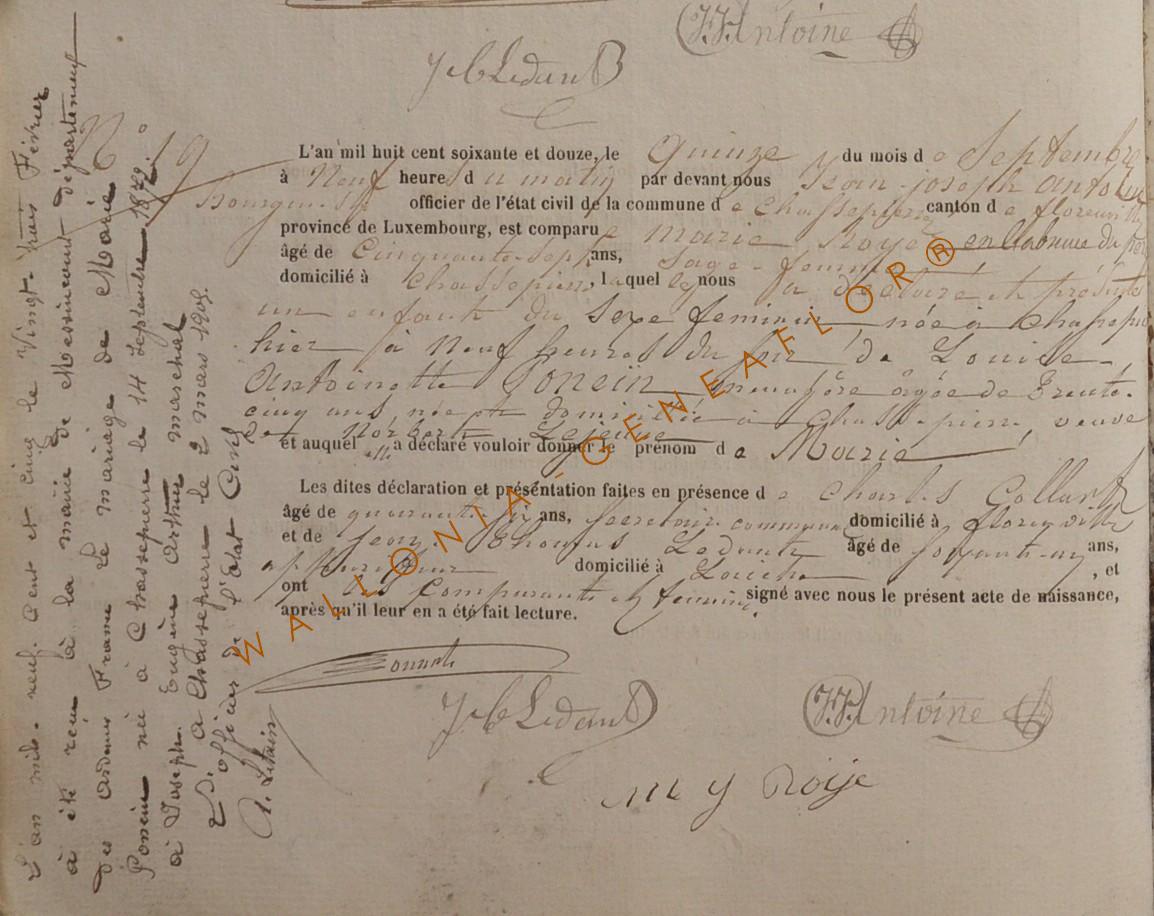 J.J. Antoine
J b Ledant
N° 19
L'an mil huit cent soixante et douze, le Quinze du mois de Septembre
à Neuf heures du matin par devant nous Jean-joseph antoine
Bourgmestre officier de l'état civil de la commune de Chassepierre canton de florenville
province de Luxembourg, est comparue marie Royer
âgé de Cinquante-sept ans, Sage-femme
domicilié à Chassepierre, laquelle nous a déclaré et présenté
un enfant du sexe feminin née à Chassepierre
hier à Neuf heures du soir de Louise-
Antoinette Poncin, ménagère âgée de trente-
cinq ans, née et domiciliée à Chassepierre, veuve
de Norbert Lejeune
et auquel elle a déclaré vouloir donner le prénom de Marie
Les dites déclaration et présentation faites en présence de Charles Collart
âgé de quarante six ans, secrétaire communal domicilié à florenville
et de Jean Ledant âgé de soixante-un ans,
domicilié à Laiche, et
ont les Comparants et témoins signé avec nous le présent acte de naissance,
après qu'il leur en a été fait lecture.
J b Ledant
J.J. Antoine
m j Roije
L'an mil neuf cent et cinq le Vingt-huit Février
à été reçu à la mairie de Messincourt département
des Ardennes France le mariage de Marie
Poncin née à Chassepierre le 14 Septembre 1872.
à Joseph Eugène Arthur Marchal
à Chassepierre le 2 mars 1905.
L'officier de l'Etat Civil
WALLONIA - GENEAFLOR®